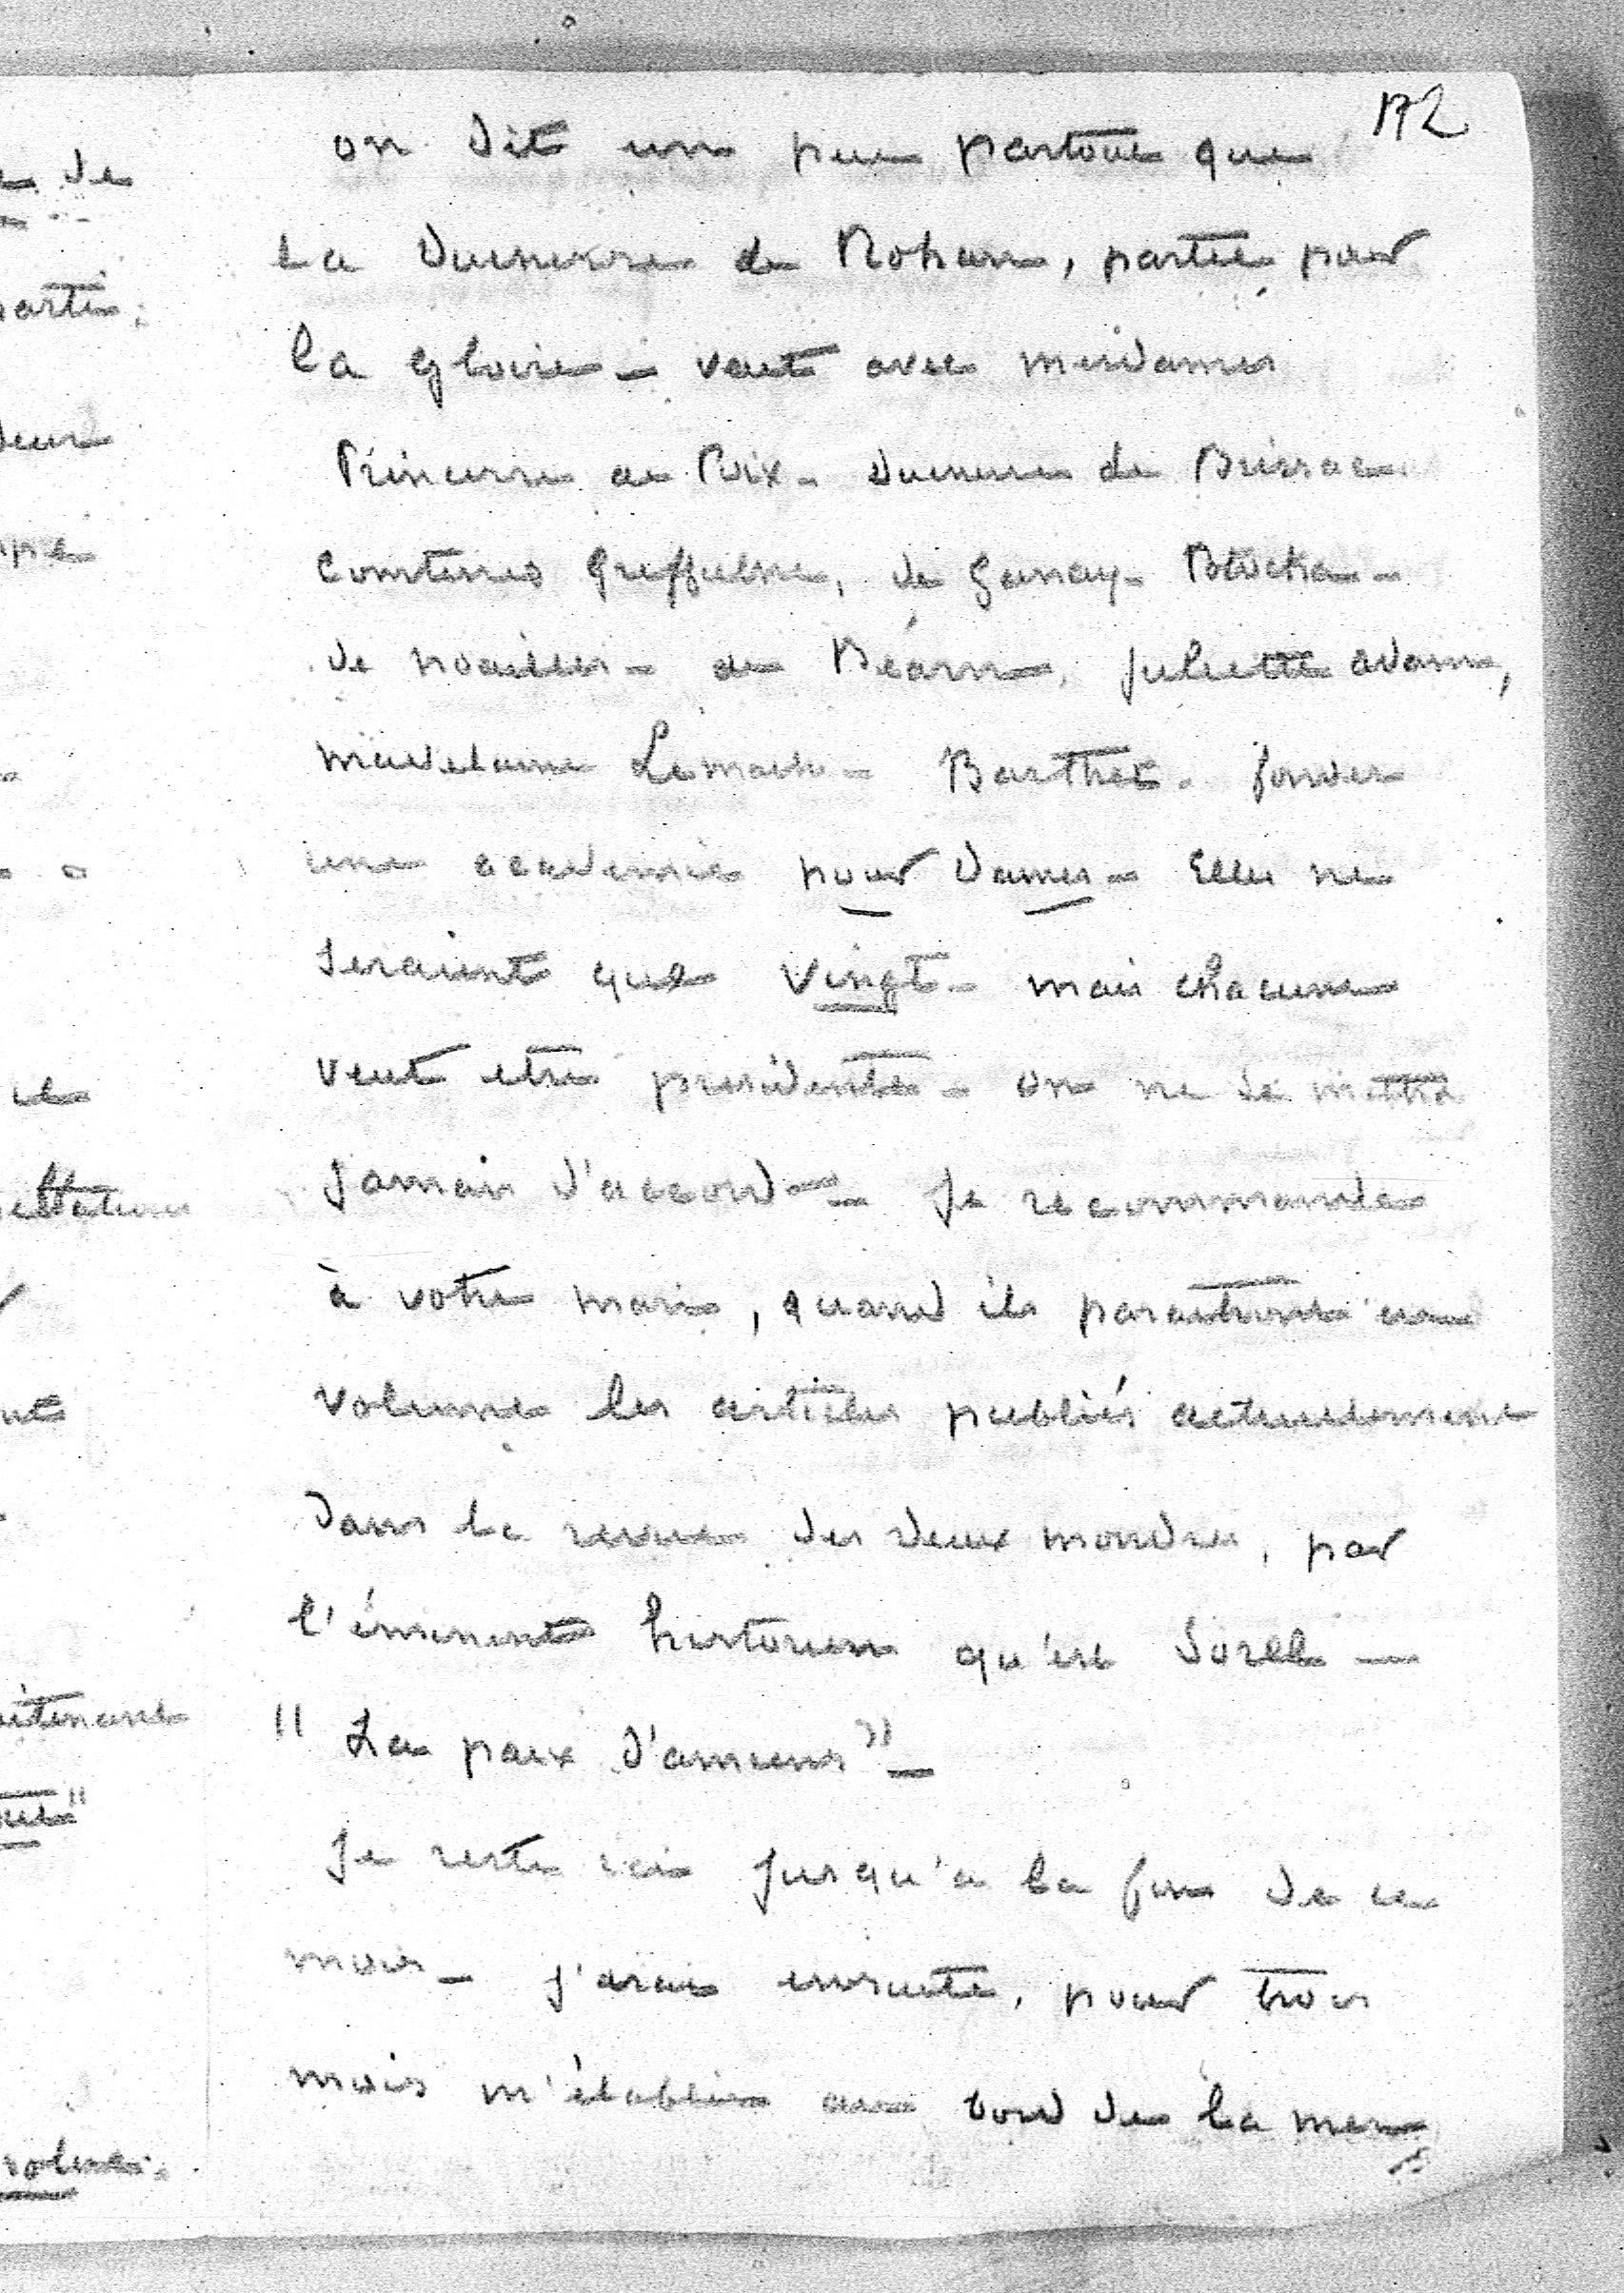 172
on dit un peu partout que
la Duchesse de Rohan, partie pour
la gloire - veut avec mesdames
Princesse de Poix - Duchesse de Brissac
Comtesses Greffulhe, de Ganay - Potocka -
de Noailles - de Béarn, Juliette adam,
Madelaine Lemaire - Barthet. fonder
une academie pour Dames - Elles ne
seraient que vingt - mais chacune
veut etre presidente - on ne se mettra
jamais d'accord - Je recommande
à votre mari, quand ils paraitront en
volume les articles publiés actuellement
dans la revue des deux mondes, par
l'éminent historien qu'est Sorel -
"La paix d'amiens" -
Je reste ici jusqu'a la fin de ce
mois - j'irai ensuite, pour trois
mois m'établir au bord de la mer